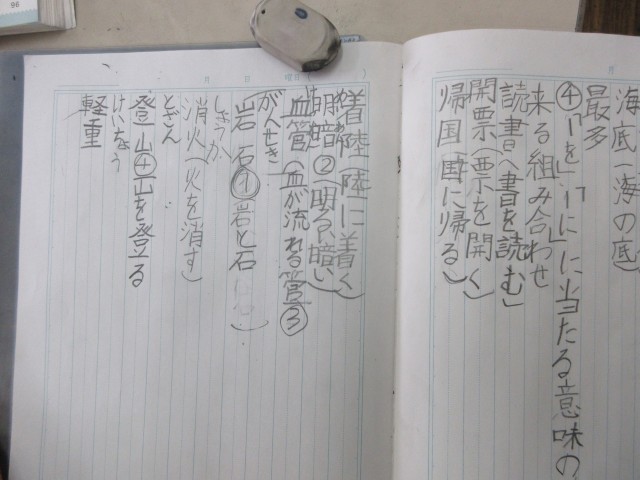 海底(海の底)
最多
④「を」「に」に当たる意味の
来る組み合わせ
読書(書を読む)
開票(票を開く)
帰国(国に帰る)
着陸(陸に着く)
明暗②(明るい暗い)
血管(血が流れる管)③
がんせき
岩石①岩と石
しょうか
消火(火を消す)
とざん
登山④山を登る
けいちょう
軽重
月 日 曜日( )
96